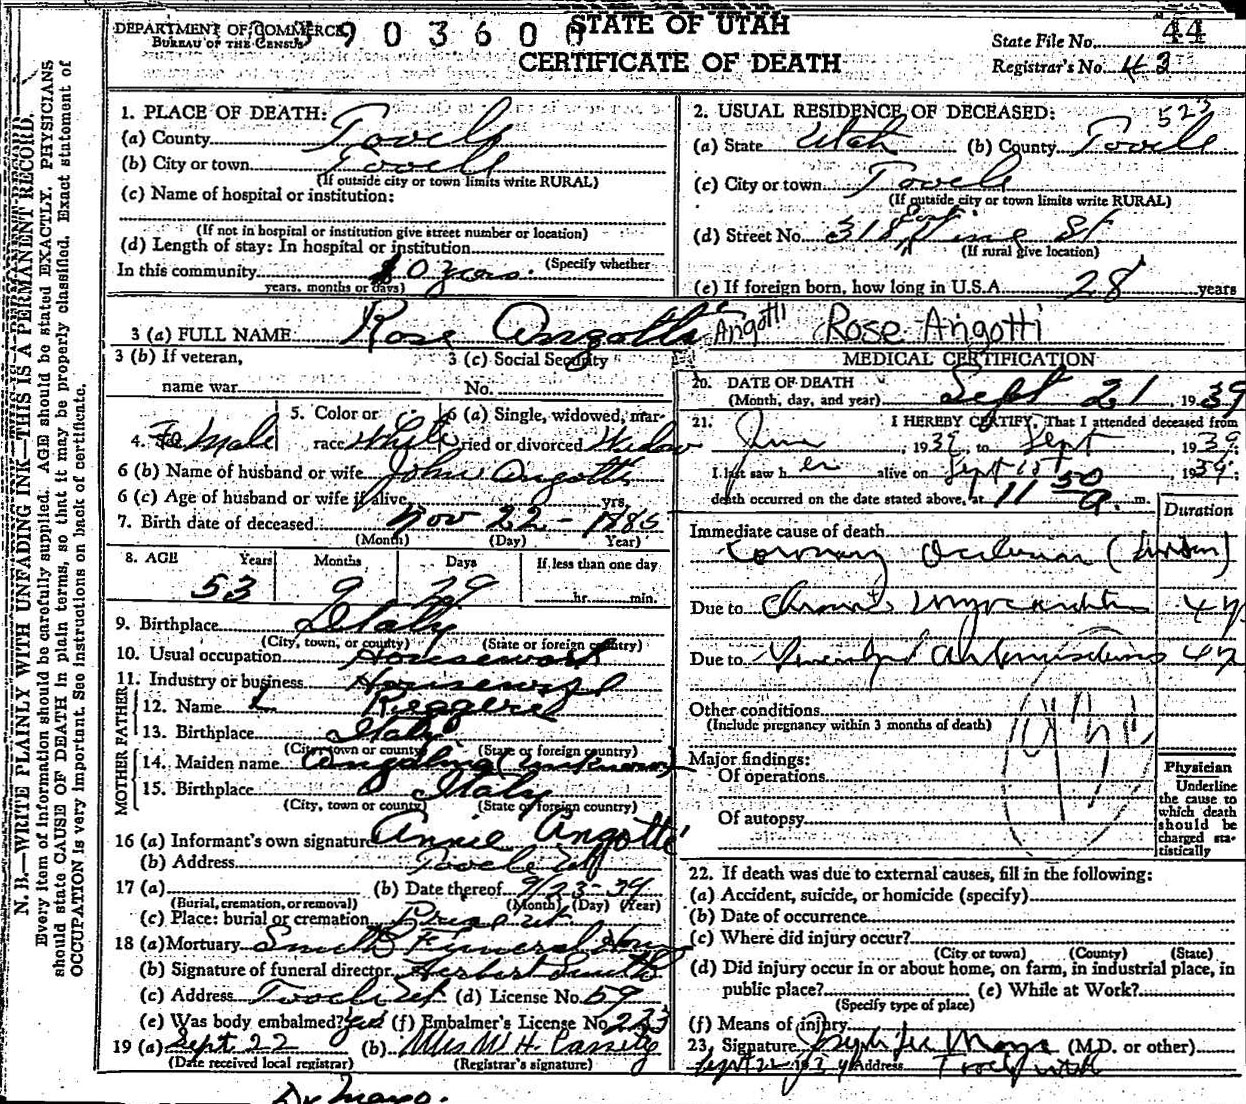 DEPARTMENT OF COMMERCE
BUREAU OF THE CENSUS
3903600
STATE OF UTAH
CERTIFICATE OF DEATH
State File No. 44
Registrar's No. 43
N. B.—WRITE PLAINLY WITH UNFADING INK—THIS IS A PERMANENT RECORD.
Every item of information should be carefully supplied. AGE should be stated EXACTLY. PHYSICIANS
should state CAUSE OF DEATH in plain terms, so that it may be properly classified. Exact statement of
OCCUPATION is very important. See instructions on back of certificate.
1. PLACE OF DEATH:
(a) County Tooele
(b) City or town Tooele
(If outside city or town limits write RURAL)
(c) Name of hospital or institution:
(If not in hospital or institution give street number or location)
(d) Length of stay: In hospital or institution
(Specify whether
In this community 0 years.
years, months or days)
2. USUAL RESIDENCE OF DECEASED: 523
(a) State Utah (b) County Tooele
(c) City or town Tooele
(If outside city or town limits write RURAL)
(d) Street No. 318 St
(If rural give location)
(e) If foreign born, how long in U.S.A. 28 years
3 (a) FULL NAME Rose Angotti Angotti Rose Angotti
3 (b) If veteran, name war
3 (c) Social Security No.
4. Sex Female
5. Color or race White
6 (a) Single, widowed, married or divorced Widow
6 (b) Name of husband or wife John Angotti
6 (c) Age of husband or wife if alive yrs.
7. Birth date of deceased Nov 22 - 1885
(Month) (Day) Year)
8. AGE Years Months Days If less than one day
53 9 29 hr. min.
9. Birthplace Italy
(City, town, or county) (State or foreign country)
10. Usual occupation Housework
11. Industry or business Housewife
FATHER
12. Name
13. Birthplace Italy
(City, town or county) (State or foreign country)
MOTHER
14. Maiden name Angelina (unknown)
15. Birthplace Italy
(City, town or county) (State or foreign country)
16 (a) Informant's own signature Annie Angotti
(b) Address Tooele Ut
17 (a) (b) Date thereof 9/23-39
(Burial, cremation, or removal) (Month) (Day) (Year)
(c) Place: burial or cremation Price Ut.
18 (a) Mortuary Smith Funeral Home
(b) Signature of funeral director Herbert Smith
(c) Address Tooele Ut. (d) License No. 59
(e) Was body embalmed? yes (f) Embalmer's License No. 223
19 (a) Sept. 22 (b) Mrs W. H. Cassity
(Date received local registrar) (Registrar's signature)
MEDICAL CERTIFICATION
20. DATE OF DEATH
(Month, day, and year) Sept 21, 1939
21. I HEREBY CERTIFY, That I attended deceased from
June, 1939, to Sept, 1939;
I last saw her alive on Sept 1st, 1939;
death occurred on the date stated above, at 11 50 a. m.
Duration
Immediate cause of death
Coronary Occlusion (sudden)
Due to Chronic Myocarditis 4 yr
Due to Generalized Arteriosclerosis 4 yr
Other conditions
(Include pregnancy within 3 months of death)
Major findings:
Of operations
Of autopsy
Physician
Underline
the cause to
which death
should be
charged sta-
tistically
22. If death was due to external causes, fill in the following:
(a) Accident, suicide, or homicide (specify)
(b) Date of occurrence
(c) Where did injury occur?
(City or town) (County) (State)
(d) Did injury occur in or about home, on farm, in industrial place, in
public place? (e) While at Work?
(Specify type of place)
(f) Means of injury
23. Signature Joseph Lee Mayo (M.D. or other)
Sept 22 Address Tooele Utah
Dr Mayo.